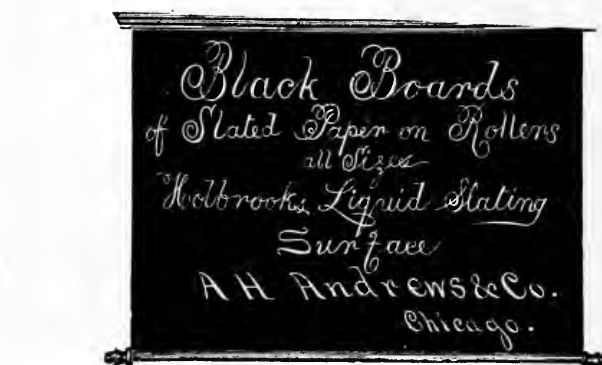 Black Boards
of Slated Paper on Rollers
all Sizes
Holbrooks Liquid Slating
Surface
A H Andrews & Co.
Chicago.